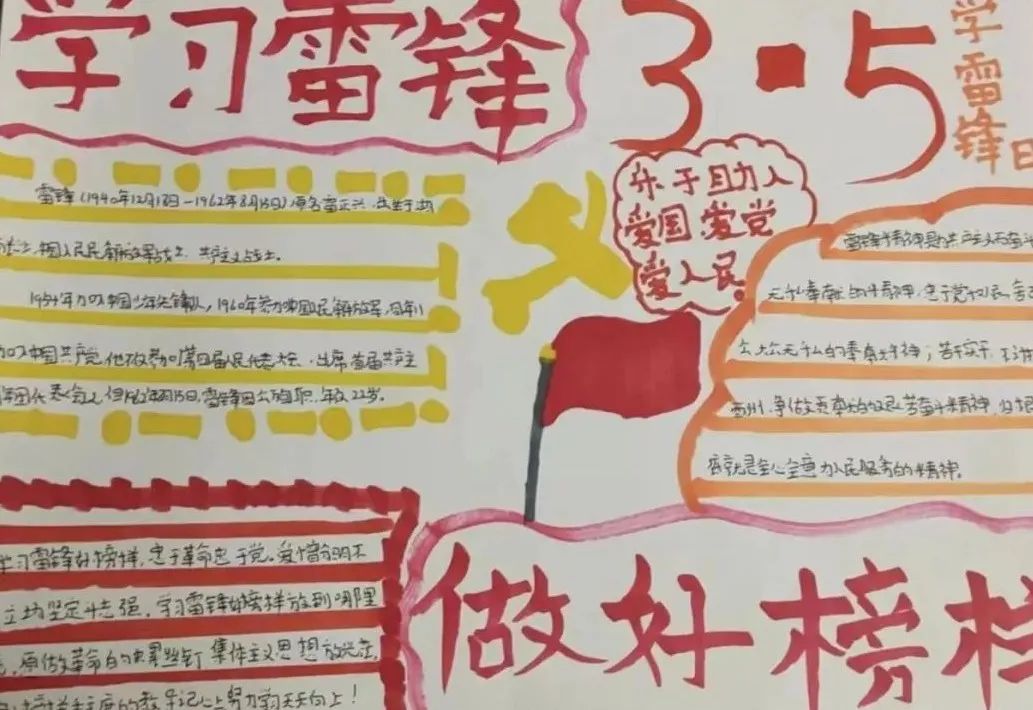 学习雷锋
3·5
学雷锋日
乐于助人
爱国 爱党
爱人民。
雷锋(1940年12月18日-1962年8月15日)原名雷正兴,出生于湖
中国人民解放军战士,共产主义战士。
1954年加入中国少年先锋队,1960年参加中国人民解放军,同年11
加入中国共产党,他被参加第四届人民代表大会,出席首届共产主
年团代表会。但1962年8月15日,雷锋因公殉职,年仅22岁。
雷锋精神是共产主义
无私奉献的精神,忠于党和人民,舍己
公,大公无私的奉献精神;苦干实干,不讲
奋斗精神,归根
全心全意为人民服务的精神。
学习雷锋好榜样,忠于革命忠于党。爱憎分明不
立场坚定斗志强。学习雷锋好榜样放到哪里
,愿做革命的螺丝钉集体主义思想放光芒。
主席的教导记心上努力学习天天向上!
做好榜样